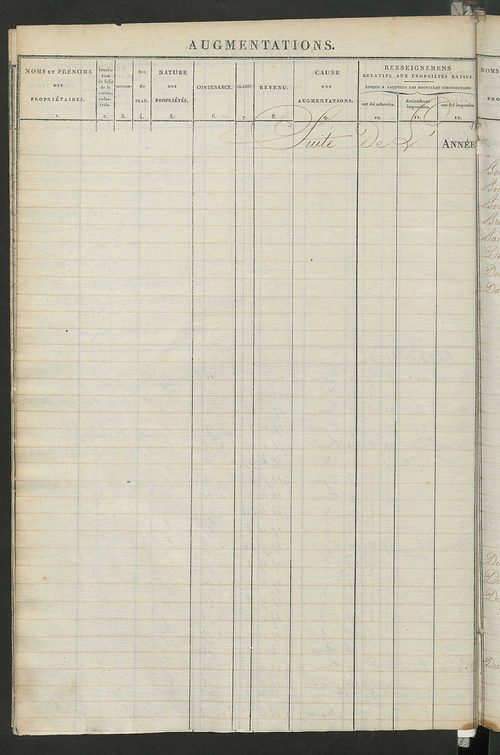 AUGMENTATIONS.
NOMS ET PRÉNOMS
DES
PROPRIÉTAIRES.
1.
2.
SECTIONS
3.
Nos.
du
PLAN.
4.
NATURE
DES
PROPRIÉTÉS.
5.
CONTENANCE.
6.
CLASSE.
7.
REVENU.
8.
CAUSE
DES
AUGMENTATIONS.
9.
RENSEIGNEMENS
RELATIFS AUX PROPRIÉTÉS BATIES.
ÉPOQUE A LAQUELLE LES NOUVELLES CONSTRUCTIONS
ont été achevées.
10.
deviendront
imposables.
11.
ont été imposées.
12.
Suite De L'
ANNÉE
NOMS
PRO